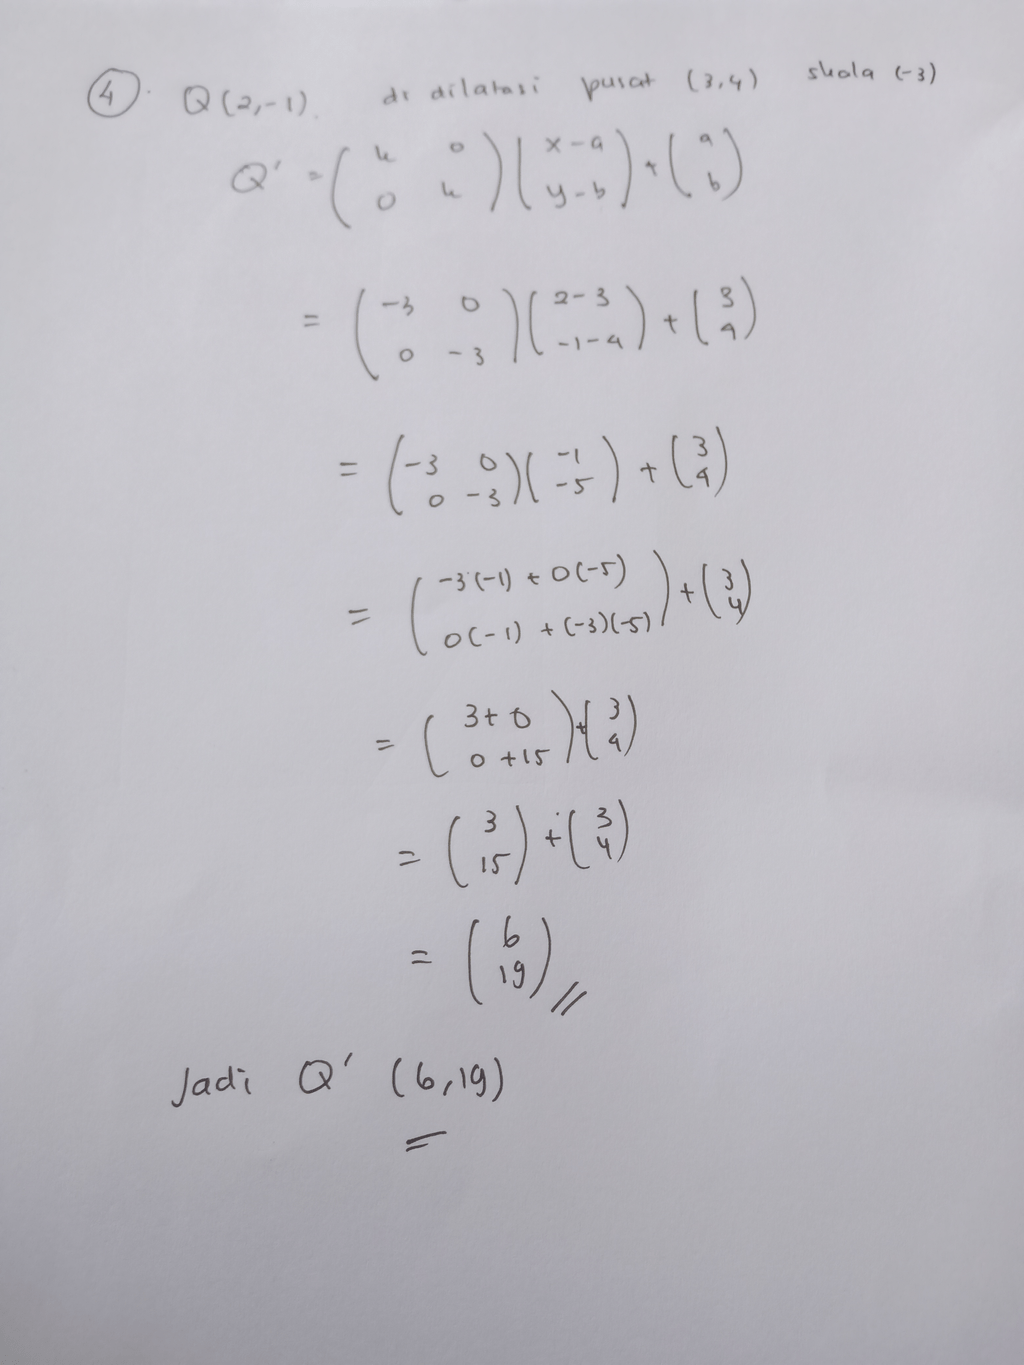 4. Q(2,-1). di dilatasi pusat (3,4) skala (-3)
Q' = (k 0 / 0 k)(x-a / y-b) + (a / b)
= (-3 0 / 0 -3)(2-3 / -1-4) + (3 / 4)
= (-3 0 / 0 -3)(-1 / -5) + (3 / 4)
= (-3(-1) + 0(-5) / 0(-1) + (-3)(-5)) + (3 / 4)
= (3+0 / 0+15) + (3 / 4)
= (3 / 15) + (3 / 4)
= (6 / 19) //
Jadi Q' (6,19)